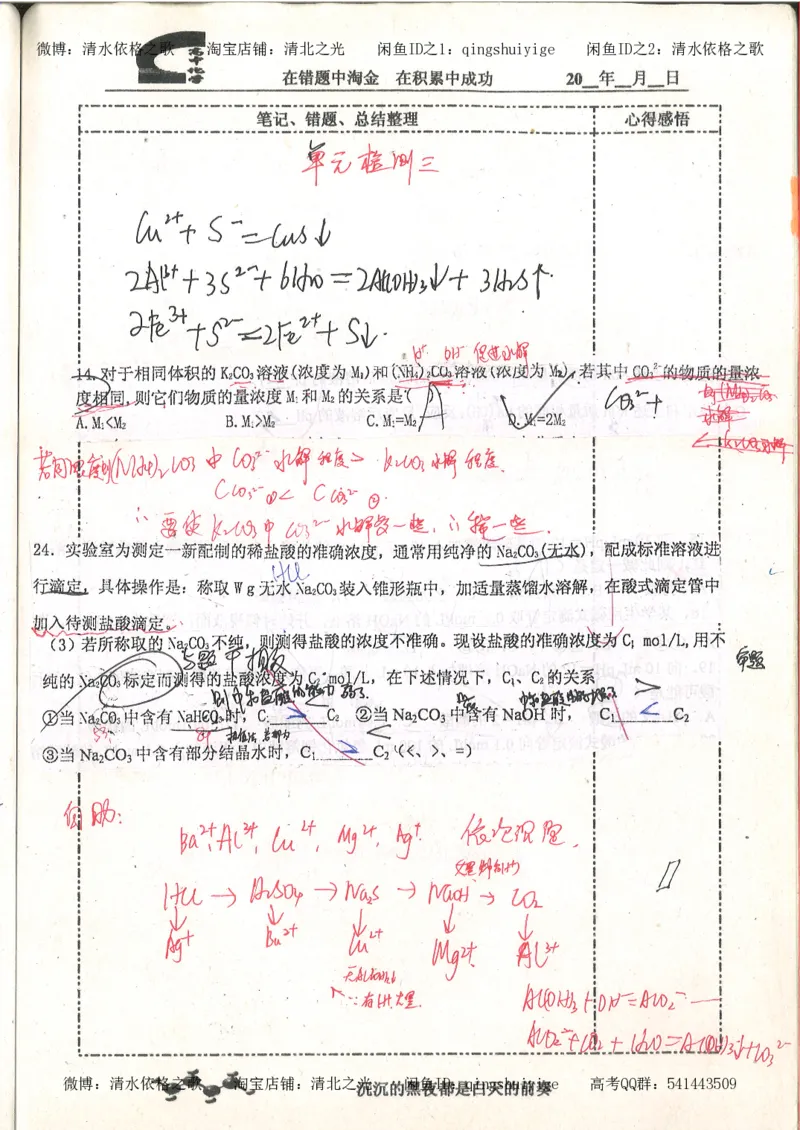 微博：清水依格之歌 淘宝店铺：清北之光 闲鱼ID之1：qingshuiyige 闲鱼ID之2：清水依格之歌
在错题中淘金 在积累中成功 20__年__月__日
笔记、错题、总结整理 心得感悟
单元检测三
Cu²⁺+S²⁻=CuS↓
2Al³⁺+3S²⁻+6H₂O=2Al(OH)₃↓+3H₂S↑
2Fe³⁺+S²⁻=2Fe²⁺+S↓
H⁺ OH⁻ 促进水解
14.对于相同体积的K₂CO₃溶液(浓度为M₁)和(NH₄)₂CO₃溶液(浓度为M₂),若其中CO₃²⁻的物质的量浓
度相同,则它们物质的量浓度M₁和M₂的关系是( )
CO₃²⁻+
A.M₁<M₂ B.M₁>M₂ C.M₁=M₂ D.M₁=2M₂
若同浓度则(NH₄)₂CO₃中CO₃²⁻水解程度> K₂CO₃水解程度
CCO₃²⁻①< CCO₃²⁻②
∴要使K₂CO₃中CO₃²⁻水解多一些,∴稀一些.
24．实验室为测定一新配制的稀盐酸的准确浓度，通常用纯净的Na₂CO₃(无水)，配成标准溶液进
HCl
行滴定。具体操作是：称取 W g 无水Na₂CO₃装入锥形瓶中，加适量蒸馏水溶解，在酸式滴定管中
加入待测盐酸滴定。
（3）若所称取的Na₂CO₃不纯，则测得盐酸的浓度不准确。现设盐酸的准确浓度为C₁ mol/L,用不
审题
纯的Na₂CO₃标定而测得的盐酸浓度为C₂ mol/L，在下述情况下，C₁、C₂的关系
①当Na₂CO₃中含有NaHCO₃时，C₁ > C₂ ②当Na₂CO₃中含有NaOH时， C₁ < C₂
53 84
③当Na₂CO₃中含有部分结晶水时，C₁ > C₂（<、>、=）
<
Ba²⁺,Al³⁺,Cu²⁺,Mg²⁺,Ag⁺ 依次沉淀.
HCl → → Na₂S → NaOH → CO₂
Ag⁺ Ba²⁺ Cu²⁺ Mg²⁺ Al³⁺
Al(OH)₃+OH⁻=AlO₂⁻
AlO₂⁻+CO₂+H₂O=Al(OH)₃↓+CO₃²⁻
微博：清水依格之歌 淘宝店铺：清北之光 闲鱼ID：qingshuiyige 高考QQ群：541443509
沉沉的黑夜都是白天的前奏